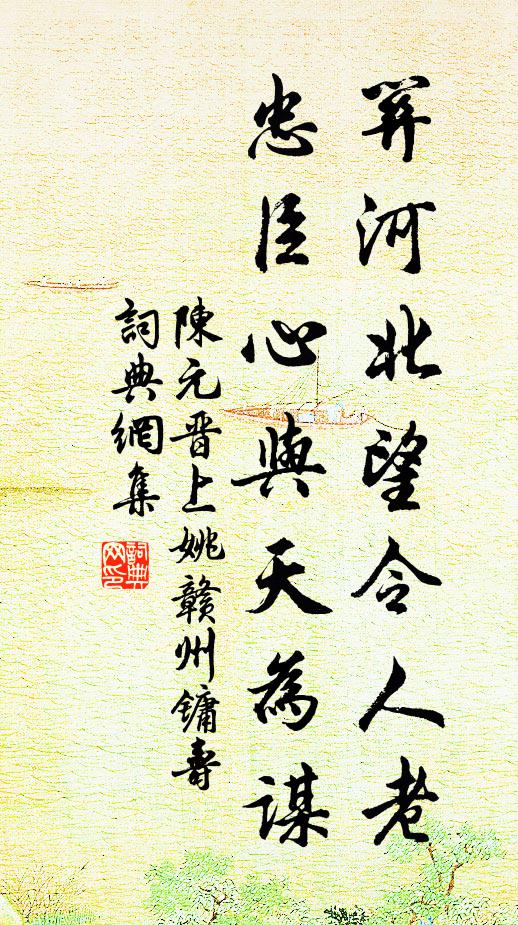 關河北望令人老
忠臣心與天為謀
陳元晋上姚贛州鏞壽
詞典網集
詞典网印